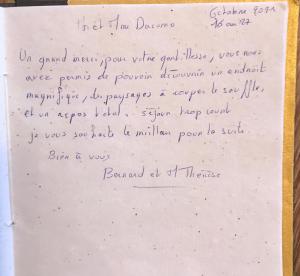 Octobre 2021
Mr et Mme Dacomo
Un grand merci, pour votre gentillesse, vous nous
avez permis de pouvoir découvrir un endroit
magnifique, des paysages à couper le souffle,
et un repos total. Séjour trop court
je vous souhaite le meilleur pour la suite.
Bien à vous
Bernard et M Thérèse